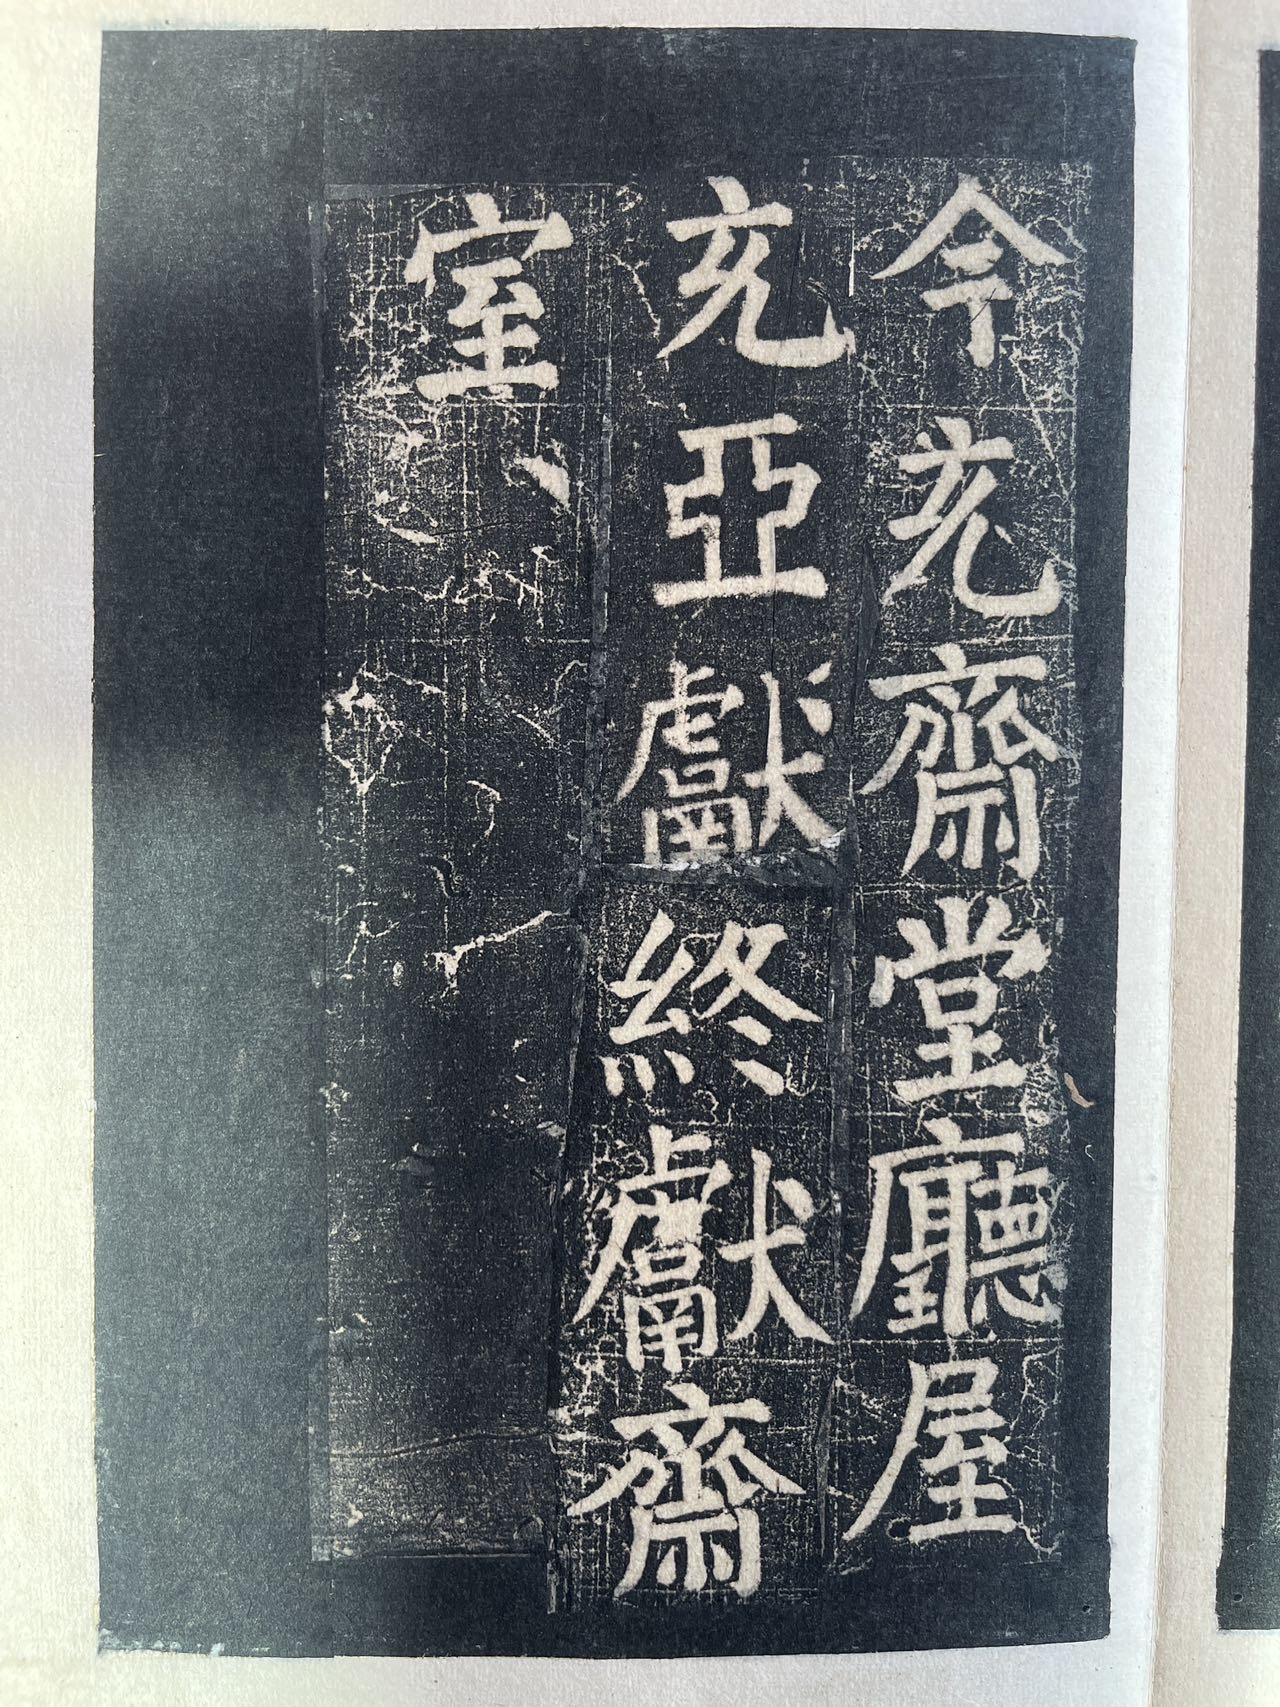 今充齋堂廳屋
充亞獻終獻齋
室